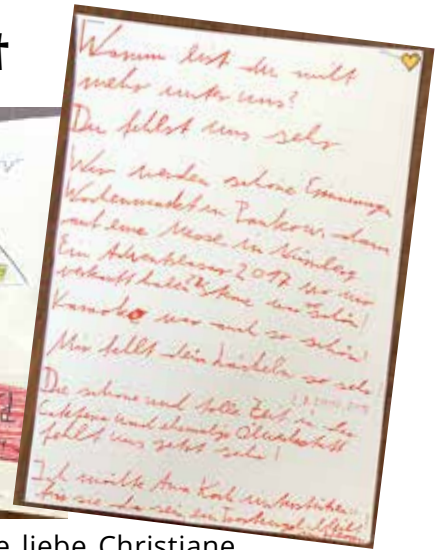 t
Warum bist du nicht
mehr unter uns?
Du fehlst uns sehr
Wir werden schöne Erinnerungen
Wochenmarkt in Pankow, dann
auf eine Messe in Nürnberg
Ein Adventbasar 2017 wo wir
verkauft haben Sterne war schön!
Karaoke war auch so schön!
Mir fehlt dein Lächeln so sehr!
Die schöne und tolle Zeit in der
und ehemalige
fehlt uns jetzt sehr!
Ich möchte Koch unterstützen
für sie da sein
e liebe Christiane